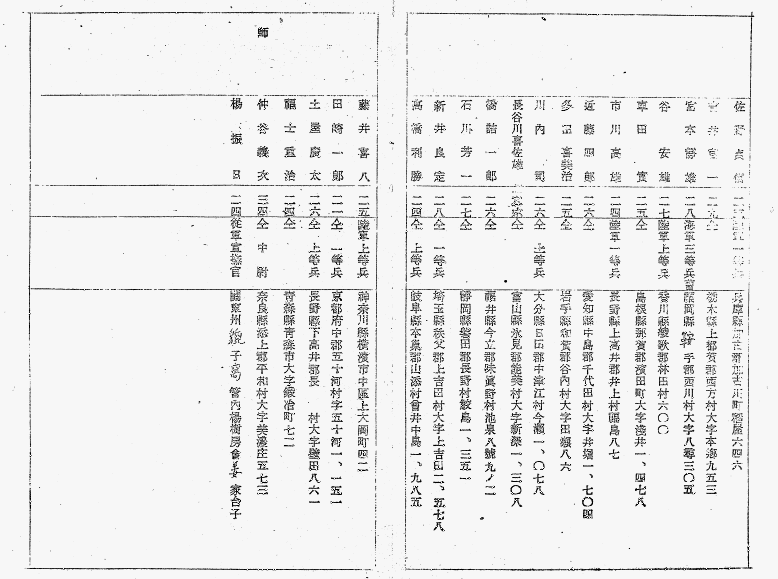 佐 貞 二 一等兵 兵庫縣加古郡加古川町 屋六四六
井 一 仝 栃木縣上都賀郡西方村大字本鄕九五三
宮本勝雄 二八 海軍三等兵 福岡縣 手郡西川村大字八尋三〇五
谷安雄 二七 陸軍上等兵 香川縣綾歌郡林田村六〇〇
車田 實 二五 仝 島根縣那賀郡濱田町大字淺井一、四七八
市川高雄 二四 陸軍一等兵 長野縣上高井郡井上村福島八七
近藤四郎 二六 仝 愛知縣中島郡千代田村大字井堀一、七〇四
多田喜美治 二五 仝 岩手縣和賀郡谷內村大字田瀨八六
川內 司 二六 仝 上等兵 大分縣日田郡中津江村合瀨一、〇七八
長谷川喜佐雄 仝 富山縣氷見郡熊美村大字新保一、三〇八
橋詰一郎 二六 仝 福井縣今立郡味眞野村池泉八號九ノ二
石川芳一 二七 仝 靜岡縣磐田郡長野村鮫島一、三五一
新井良定 二八 仝 一等兵 埼玉縣秩父郡上吉田村大字上吉田二、五七八
高橋利勝 二四 仝 上等兵 岐阜縣本巢郡山添村曾井中島一、九八五
藤井喜八 二五 陸軍上等兵 神奈川縣橫濱市中區上大岡町四二
田崎一郎 二一 仝 一等兵 京都府中郡五十河村字五十河一、一五一
土屋慶太 二六 仝 上等兵 長野縣下高井郡長 村大字 田八六一
福士重治 二四 仝 靑森縣靑森市大字鍛冶町七二
師 仲谷義次 三四 仝 中尉 奈良縣添上郡平和村大字美濃庄五七三
楊振日 二四 從軍宣撫官 關東州 子窩管內楊樹房會姜家台子